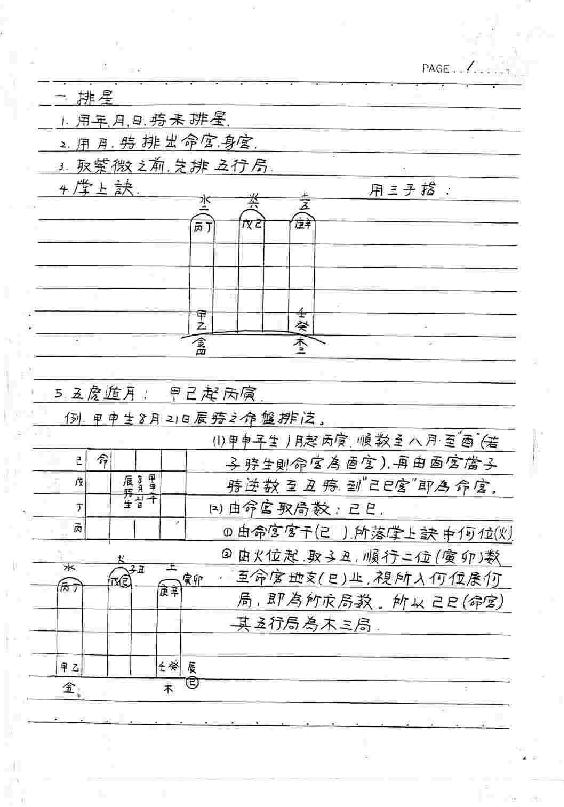 PAGE..1......
一 排星
1. 用年,月,日,時來排星.
2. 用月.時排出命宮.身宮.
3. 取紫微之前.先排五行局.
4. 掌上訣. 用三手指:
水二 火六 土五
丙丁 戊己 庚辛
甲乙 壬癸
金四 木三
5. 五虎遁月: 甲己起丙寅.
例. 甲申生8月21日辰時之命盤排法。
(1)甲申年生1月起丙寅.順數至八月.至"酉"(若
子時生則命宮為酉宮).再由酉宮當子
時逆數至丑時.到"己巳宮"即為命宮。
己 命
戊 辰時生 8月21日 甲申年
丁
丙
(2)由命宮取局數: 己巳.
①由命宮宮干(己).所落掌上訣中何位(火)
②由火位起.取子丑,順行二位(寅卯)數
至命宮地支(巳)止,視所入何位屬何
局,即為所求局數。所以己巳(命宮)
其五行局為木三局.
水 火 土
丙丁 戊己 子丑 庚辛 寅卯
甲乙 壬癸 辰
巳
金 木